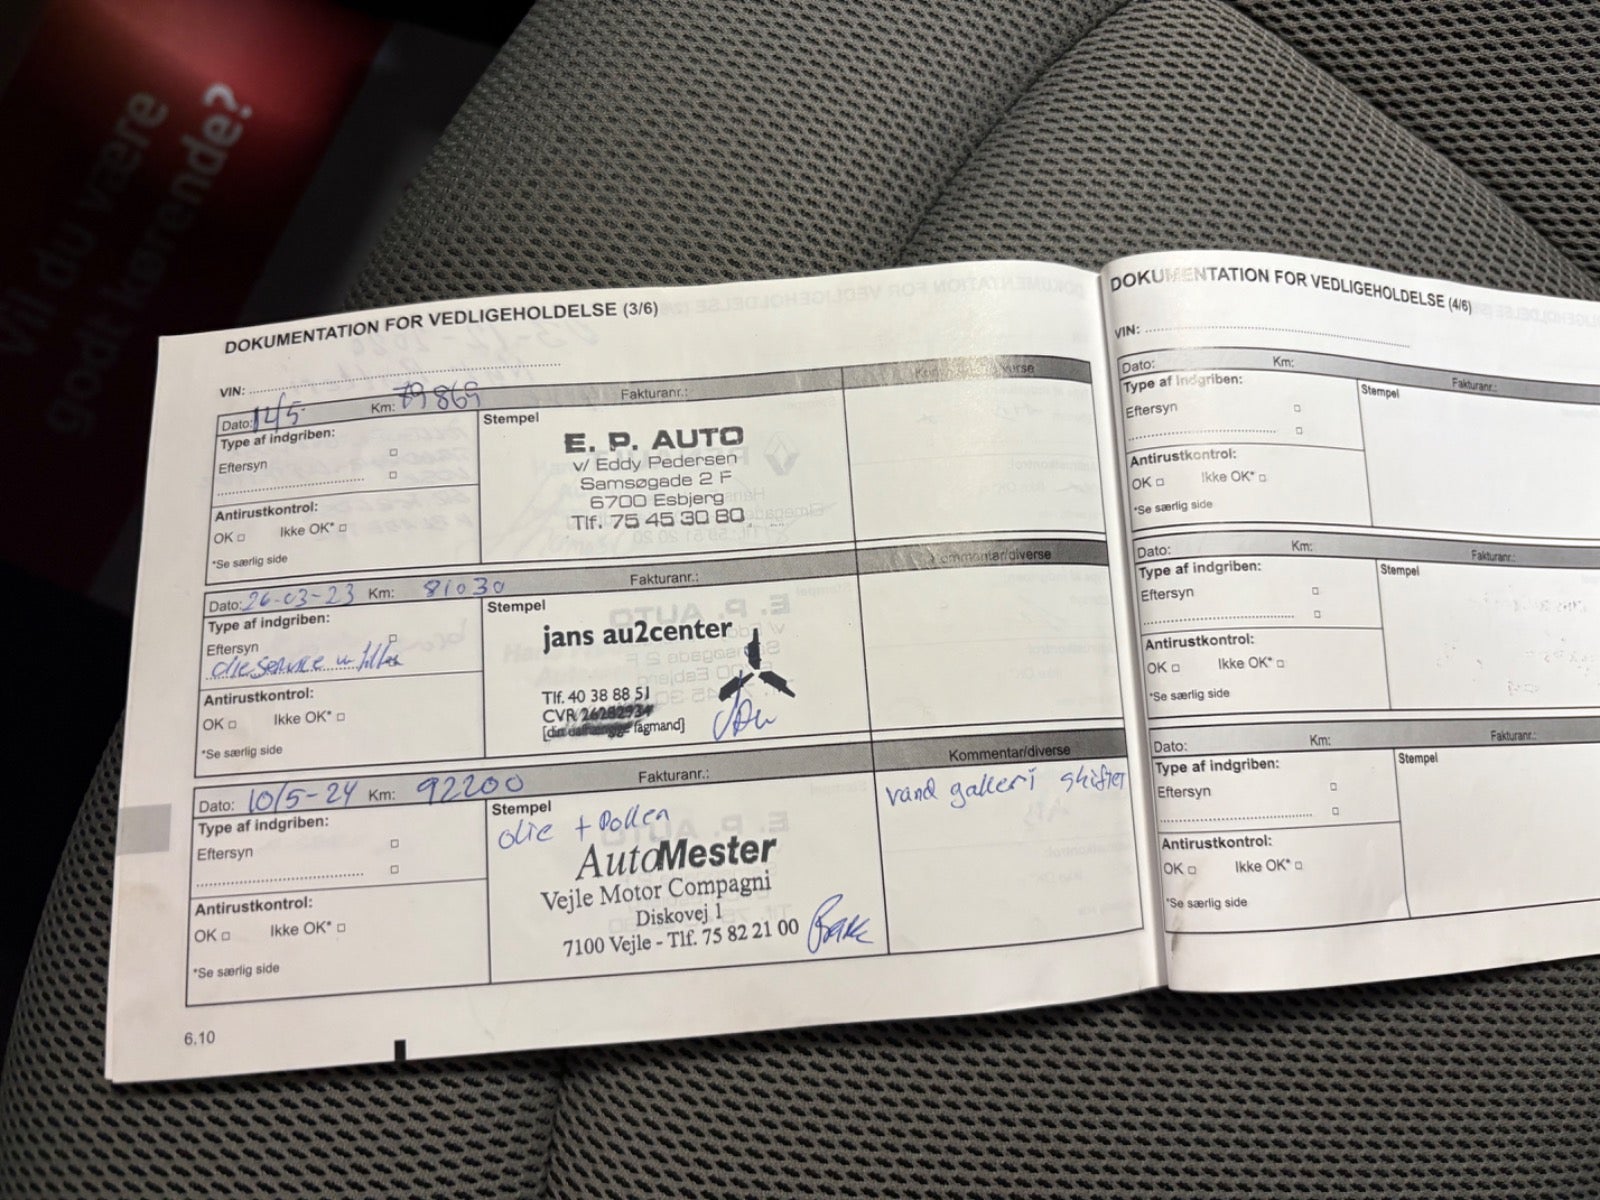 Vil du være
godt kørende?
DOKUMENTATION FOR VEDLIGEHOLDELSE (3/6)
VIN:
Dato: 14/5- Km: 79869 Fakturanr.:
Type af indgriben:
Eftersyn
Antirustkontrol:
OK □ Ikke OK* □
*Se særlig side
Stempel
E. P. AUTO
v/ Eddy Pedersen
Samsøgade 2 F
6700 Esbjerg
Tlf. 75 45 30 80
Dato: 26-03-23 Km: 81030 Fakturanr.: Kommentar/diverse
Type af indgriben:
Eftersyn
olieservice
Antirustkontrol:
OK □ Ikke OK* □
*Se særlig side
Stempel
jans au2center
Tlf. 40 38 88 51
CVR 26282934
fagmand]
Dato: 10/5-24 Km: 92200 Fakturanr.: Kommentar/diverse
Type af indgriben:
Eftersyn
Antirustkontrol:
OK □ Ikke OK* □
*Se særlig side
Stempel
olie + Pollen
AutoMester
Vejle Motor Compagni
Diskovej 1
7100 Vejle - Tlf. 75 82 21 00
vand galleri skiftet
6.10
DOKUMENTATION FOR VEDLIGEHOLDELSE (4/6)
VIN:
Dato: Km: Fakturanr.:
Type af indgriben:
Eftersyn
Antirustkontrol:
OK □ Ikke OK* □
*Se særlig side
Stempel
Dato: Km: Fakturanr.:
Type af indgriben:
Eftersyn
Antirustkontrol:
OK □ Ikke OK* □
*Se særlig side
Stempel
Dato: Km: Fakturanr.:
Type af indgriben:
Eftersyn
Antirustkontrol:
OK □ Ikke OK* □
*Se særlig side
Stempel